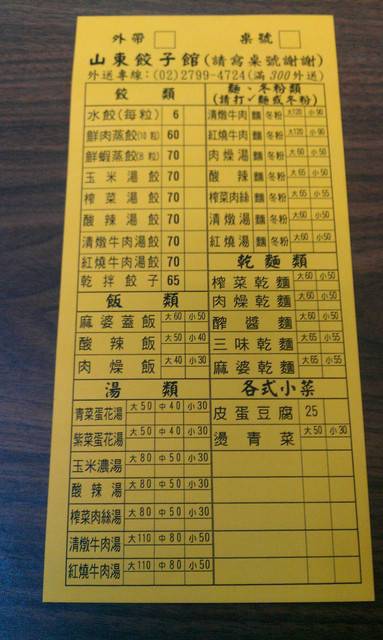 外帶 桌號
山東餃子館(請寫桌號謝謝)
外送專線：(02)2799-4724(滿300外送)
餃 類
水餃(每粒) 6
鮮肉蒸餃(10粒) 60
鮮蝦蒸餃(8粒) 70
玉米湯餃 70
榨菜湯餃 70
酸辣湯餃 70
清燉牛肉湯餃 70
紅燒牛肉湯餃 70
乾拌餃子 65
飯 類
麻婆蓋飯 大60 小50
酸辣飯 大50 小40
肉燥飯 大40 小30
湯 類
青菜蛋花湯 大50 中40 小30
紫菜蛋花湯 大50 中40 小30
玉米濃湯 大80 中50 小30
酸辣湯 大80 中50 小30
榨菜肉絲湯 大80 中50 小30
清燉牛肉湯 大110 中80 小50
紅燒牛肉湯 大110 中80 小50
麵、冬粉類
(請打✓麵或冬粉)
清燉牛肉 麵 冬粉 大120 小90
紅燒牛肉 麵 冬粉 大120 小90
肉燥湯 麵 冬粉 大60 小50
酸辣 麵 冬粉 大65 小50
榨菜肉絲 麵 冬粉 大65 小55
清燉湯 麵 冬粉 大60 小50
紅燒湯 麵 冬粉 大60 小50
乾麵類
榨菜乾麵 大60 小50
肉燥乾麵 大60 小50
醡醬麵 大60 小50
三味乾麵 大65 小55
麻婆乾麵 大65 小55
各式小菜
皮蛋豆腐 25
燙青菜 大50 小30